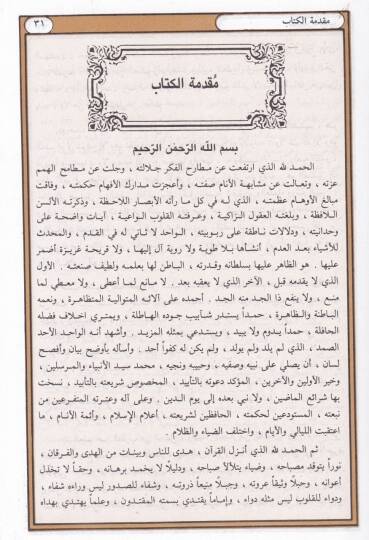 مقدمة الكتاب
٣١
مُقدمة الكتاب
بسم الله الرّحمٰن الرّحيم
الحمد لله الذي ارتفعت عن مطارح الفكر جلالته ، وجلت عن مطامح الهمم
عزته ، وتعالت عن مشابهة الأنام صفته ، وأعجزت مدارك الأفهام حكمته ، وفاقت
مبالغ الأوهام عظمته ، الذي له في كل ما رأته الأبصار اللاحظة ، وذكرته الألسن
اللافظة ، وبلغته العقول الزاكية ، وعرفته القلوب الواعية ، آيات واضحة على
وحدانيته ، ودلالات ناطقة على ربوبيته ، الواحد لا ثاني له في القدم ، والمحدث
للأشياء بعد العدم ، أنشأها بلا طوية ولا روية آل إليها ، ولا قريحة غريزة أضمر
عليها . هو الظاهر عليها بسلطانه وقدرته ، الباطن لها بعلمه ولطيف صنعته . الأول
الذي لا يقدمه قبل ، الآخر الذي لا يعقبه بعد . لا مانع لما أعطى ، ولا معطي لما
منع ، ولا ينفع ذا الجد منه الجد . أحمده على آلائه المتوالية المتظاهرة ، ونعمه
الباطنة والظاهرة ، حمداً يستدر شآبيب جوده الهاطلة ، ويمتري اخلاف فضله
الحافلة ، حمداً يدوم ولا يبيد ، ويستدعي بمثله المزيد . وأشهد أنه الواحد الأحد
الصمد ، الذي لم يلد ولم يولد ، ولم يكن له كفواً أحد . وأسأله بأوضح بيان وأفصح
لسان ، أن يصلي على نبيه وصفيه ، وحبيبه ونجيه ، محمد سيد الأنبياء والمرسلين ،
وخير الأولين والآخرين ، المؤكد دعوته بالتأييد ، المخصوص شريعته بالتأبيد ، نسخت
بها شرائع الماضين ، ولا نبي بعده إلى يوم الدين . وعلى آله وعشيرته المتفرعين من
نبعته ، المستودعين لحكمته ، الحافظين لشريعته ، أعلام الإسلام ، وأئمة الأنام ، ما
اعتقبت الليالي والأيام ، واختلف الضياء والظلام .
ثم الحمد لله الذي أنزل القرآن ، هدى للناس وبينات من الهدى والفرقان ،
نوراً يتوقد مصباحه ، وضياء يتلألأ صباحه ، ودليلاً لا يخمد برهانه ، وحقاً لا تخذل
أعوانه ، وحبلاً وثيقاً عروته ، وجبلاً منيعاً ذروته ، وشفاء للصدور ليس وراءه شفاء ،
ودواء للقلوب ليس مثله دواء ، وإماماً يقتدي بسمته المقتدون ، وعلماً يهتدي بهداه